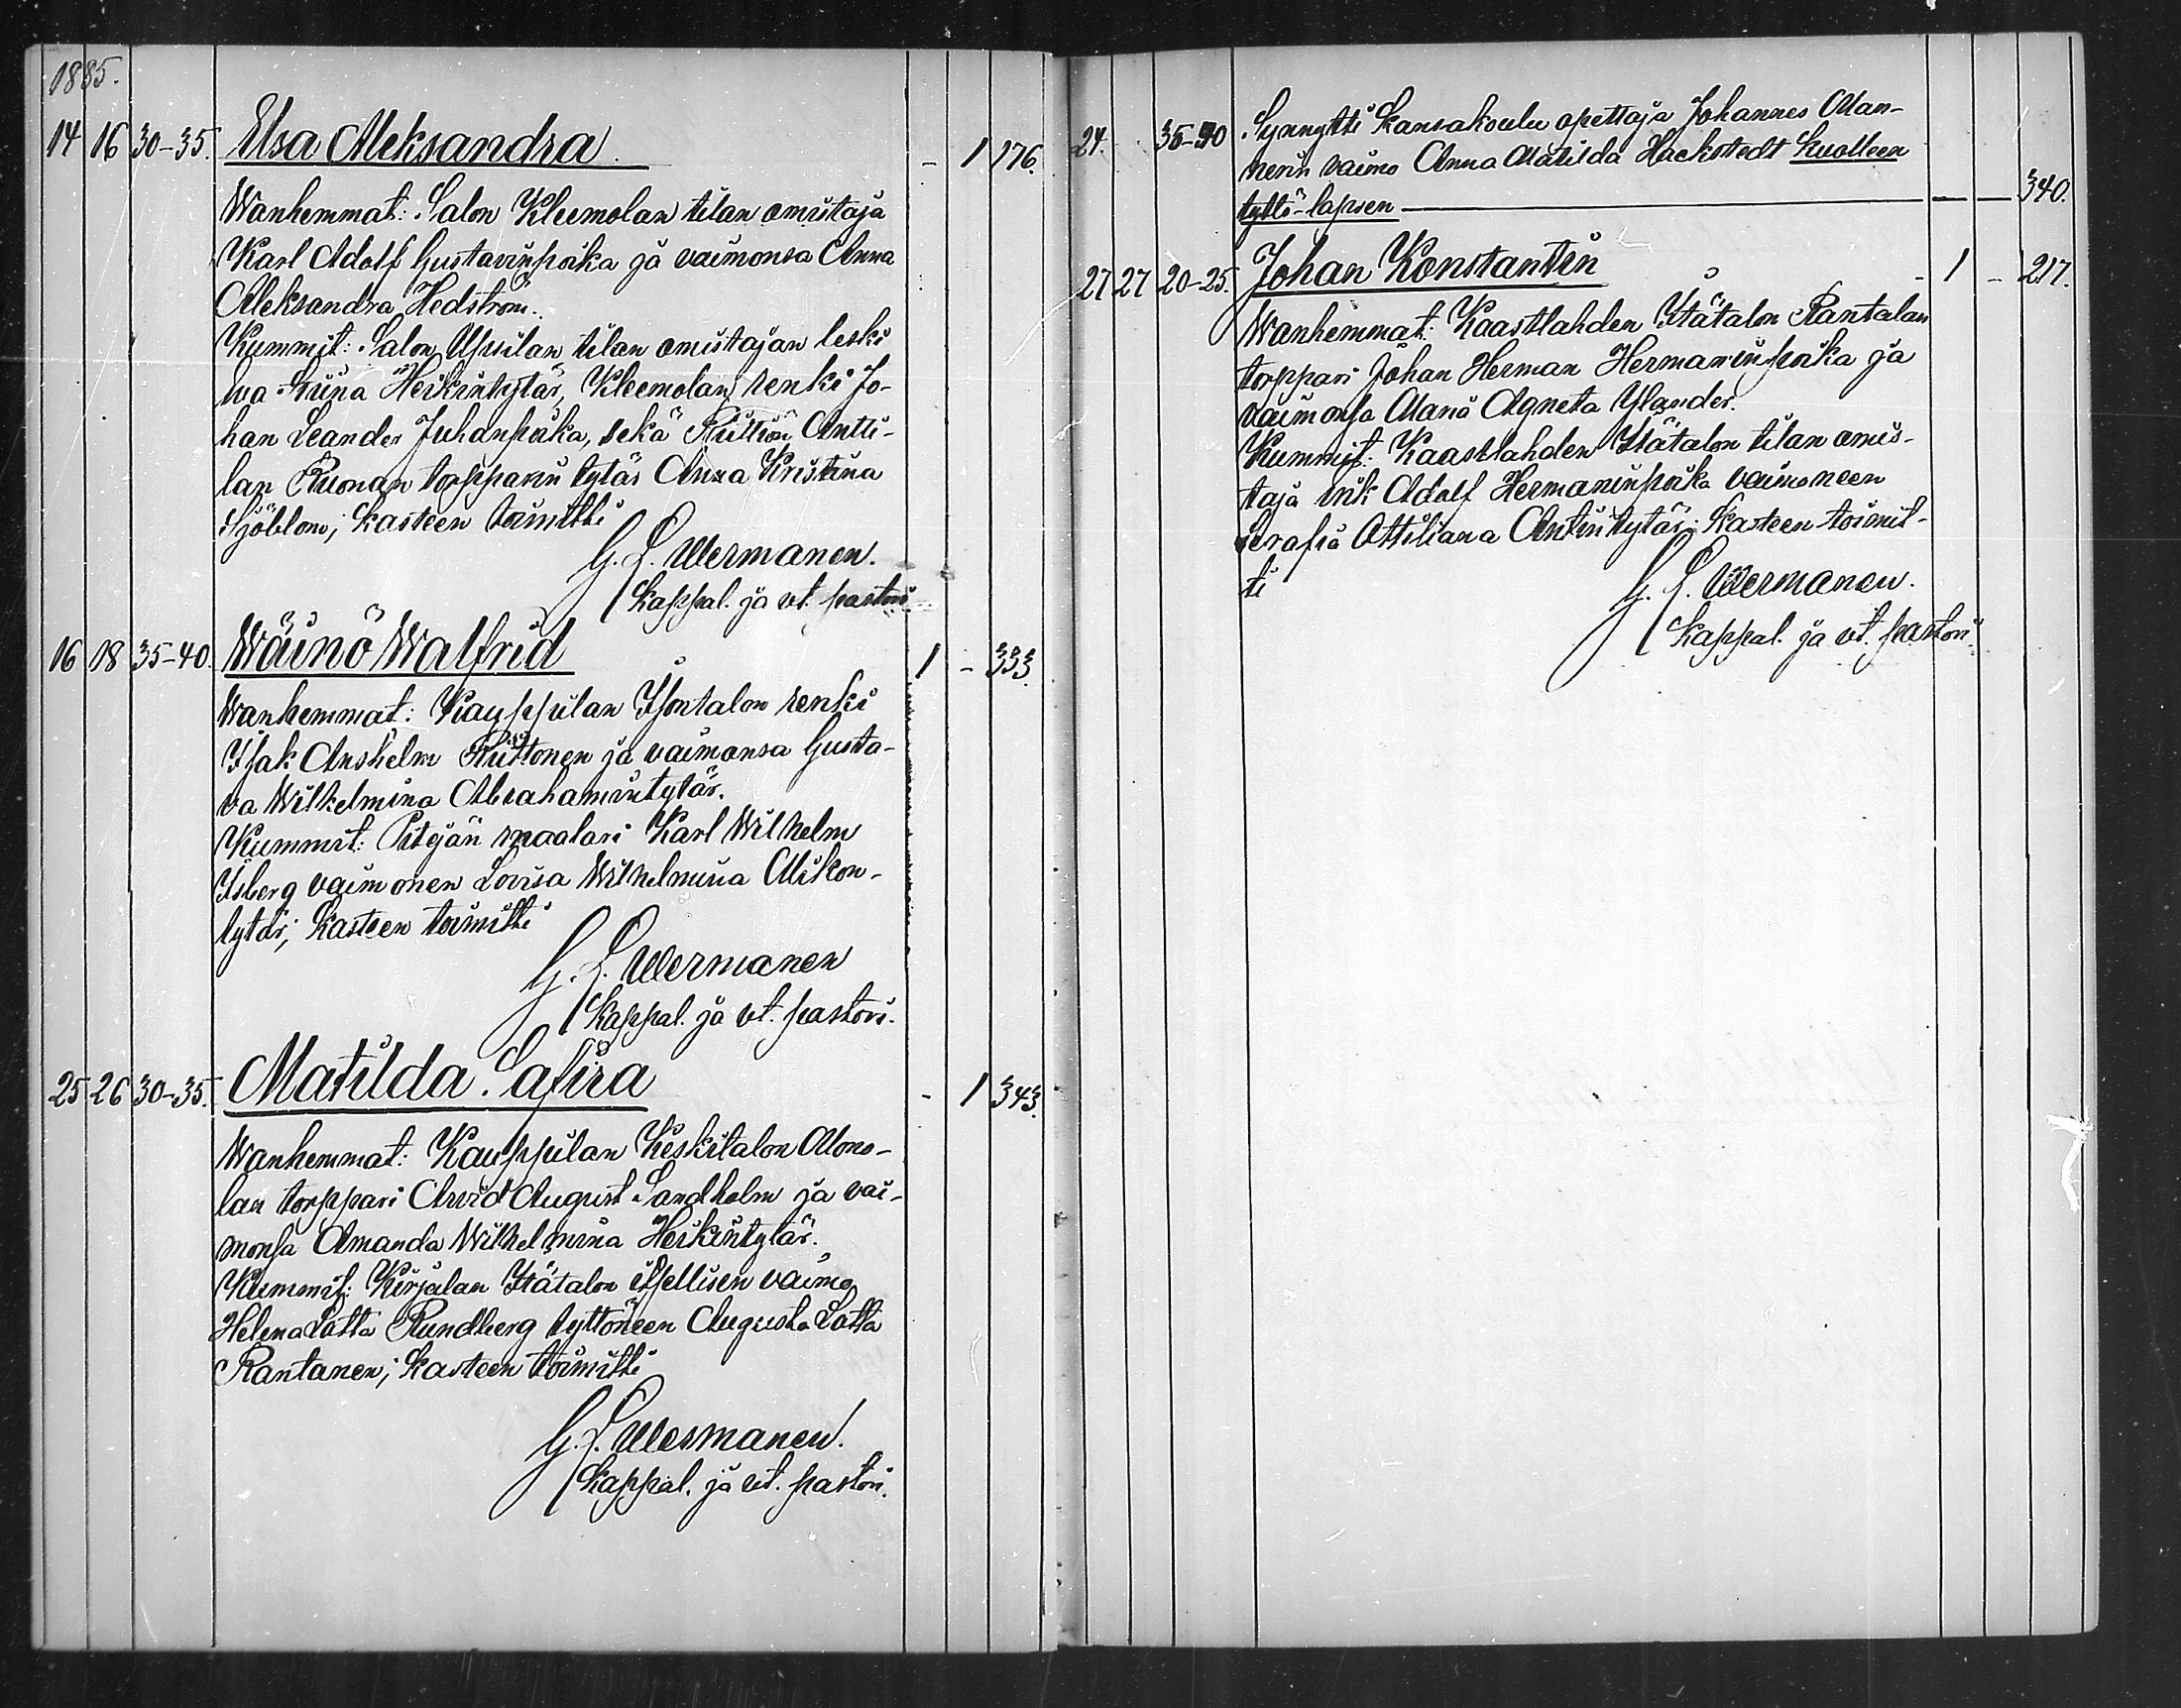 1885.
14 16 30-35. Elsa Aleksandra. - 1 176.
Wanhemmat: Salon Kleemolan tilan omistaja
Karl Adolf Gustavinpoika ja vaimonsa Anna
Aleksandra Hedström.
Kummit: Salon Upsilan tilan omistajan leski
Eva Stiina Heikintytär, Kleemolan renki Jo-
han Leander Juhanpoika, sekä Riittiön Antti-
lan Ruonan torpparin tytär Anna Kristina
Sjöblom; kasteen toimitti
G. L. Mermanen.
Kappal. ja vt. pastori
16 18 35-40. Wäinö Walfrid 1 - 333.
Wanhemmat: Kauppilan Isontalon renki
Isak Anshelm Riittonen ja vaimonsa Gusta-
va Wilhelmina Abrahamintytär.
Kummit: Pitäjän maalari Karl Wilhelm
Isberg vaimonen Lovisa Wilhelmina Mikon-
tytär; kasteen toimitti
G. L. Mermanen
Kappal. ja vt. pastori.
25 26 30-35. Matilda Safira - 1 343.
Wanhemmat: Kauppilan Keskitalon Mono-
lan torppari Arvid August Sandholm ja vai-
monsa Amanda Wilhelmina Heikintytär.
Kummit: Kirjalan Itätalon itsellisen vaimo
Helena Lotta Rundberg tyttöneen Augusta Lotta
Rantanen; kasteen toimitti
G. L. Mermanen.
Kappal. ja vt. pastori.
24. 35-40 Synnytti Kansakoulu opettaja Johannes Man-
nerin vaimo Anna Matilda Hackstedt kuolleen
tyttö-lapsen — — — 340.
27 27 20-25. Johan Konstantin - 1 - 217.
Wanhemmat: Kaastlahden Itätalon Rantalan
torppari Johan Herman Hermaninpoika ja
vaimonsa Maria Agneta Ylander.
Kummit: Kaastlahden Itätalon tilan omis-
taja Erik Adolf Hermaninpoika vaimoneen
Serafia Ottiliana Antintytär; kasteen toimit-
ti
G. L. Mermanen.
Kappal. ja vt. pastori.